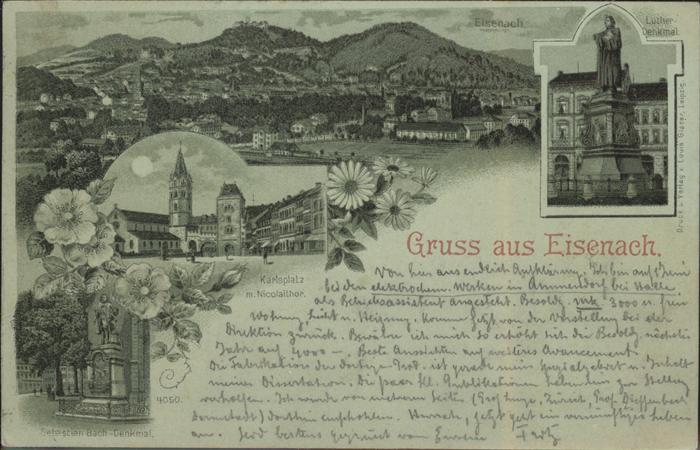 Eisenach
Luther-
Denkmal.
Druck u. Verlag v. Louis Glaser, Leipzig
Karlsplatz
m. Nicolaithor.
Gruss aus Eisenach.
4050.
Sebastian Bach-Denkmal.
Von hier aus endlich Aufklärung. Ich bin auf 1 Juni
bei den elektrochem. Werken in Ammendorf bei Halle
als Betriebsassistent angestellt. Besoldg. mk 3000 u. freie
Wohnung, Licht u. Heizung. Komme jetzt von der Vorstellung bei der
Direktion zurück. Bewähre ich mich so erhöht sich die Besoldg. nächstes
Jahr auf 4000 –. Beste Aussichten auf weiteres Avancement.
Die Fabrikation der dortigen Prod. ist gerade mein Spezialgebiet u. Inhalt
meiner Dissertation. Die paar kl. Publikationen haben mir zur Stellung
verholfen. Ich wurde von mehreren Seiten (Prof. Lunge, Zürich, Prof. Dieffenbach
Darmstadt) dorthin empfohlen. Hurrah, jetzt geht ein vernünftiges Leben
an. Seid bestens gegrüsst von Eurem Fritz